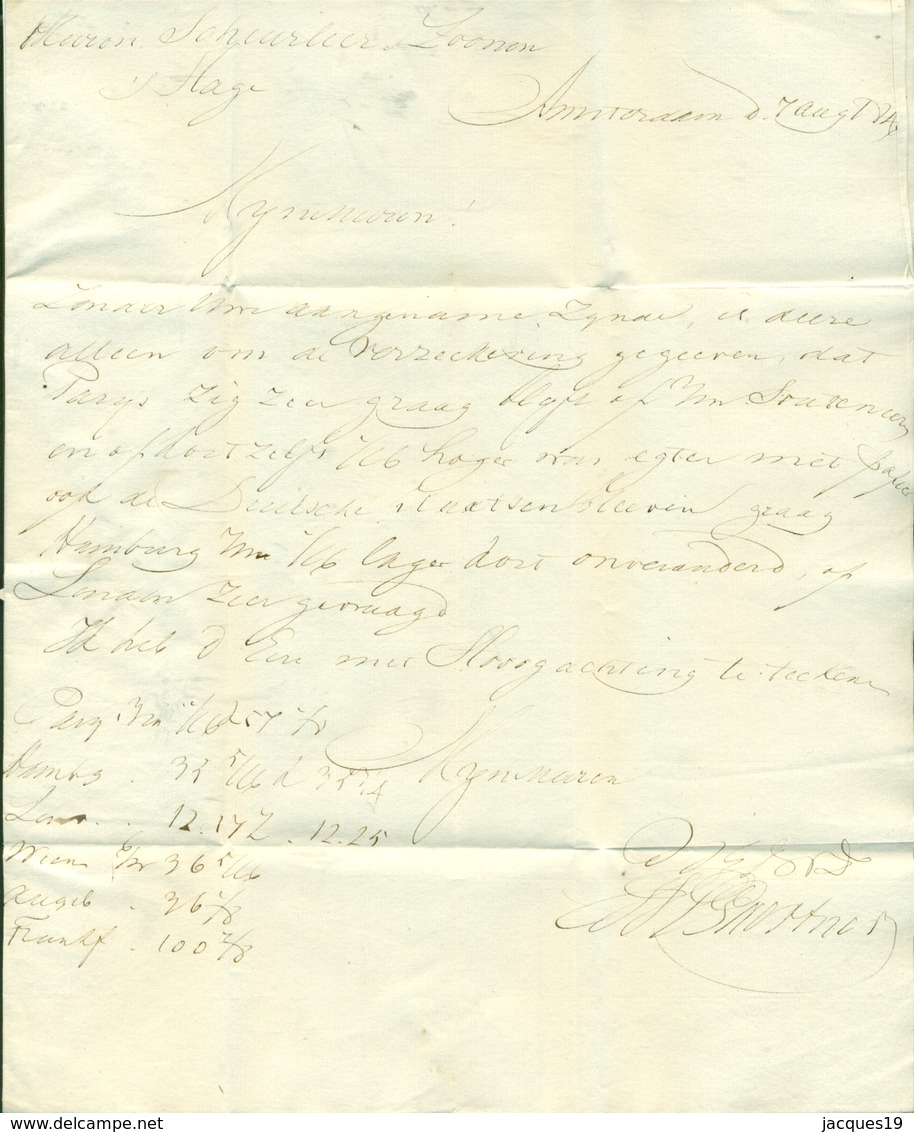 Heeren Scheurleer & Zoonen
's Hage
Amsterdam d. 7 augt
Mynheeren!
Zonder Uwe aangename Zynde, is deeze
alleen om de Verzeekering gegeeven, dat
Parys zig zeer graag blyft op
en op dato zelfs 1/16 hoger was egter met papier
ook de Duitsche plaatsen bleeven graag
Hamburg 1/16 lager dort onveranderd, op
Londen Zeer gevraagd
Ik heb d Eer met Hoogachting te teekenen
Parys 57
Hambg . 35 5/16 à 35 1/4
Lond . 12.17½ . 12.25
Ween 36 5/16
Augsb . 36
Frankf . 100
Mynheeren
UEDWDr
jacques19